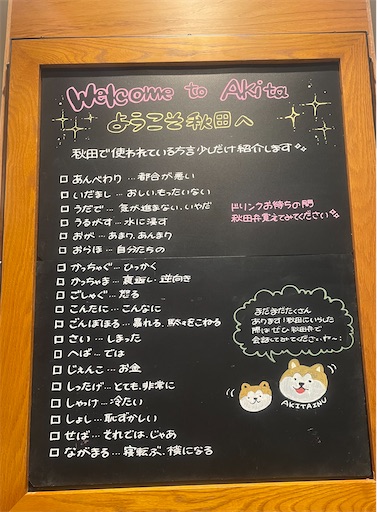 Welcome to Akita
ようこそ秋田へ
秋田で使われている方言少しだけ紹介します
□ あんべわり…都合が悪い
□ いだまし…おしい、もったいない
□ うだで…気が進まない、いやだ
□ うるがす…水に浸す
□ おが…あまり、あんまり
□ おらほ…自分たちの
ドリンクお待ちの間
秋田弁覚えてみてください
□ かっちゃぐ…ひっかく
□ かっちゃま…裏返し、逆向き
□ ごしゃぐ…怒る
□ こんたに…こんなに
□ ごんぼほる…暴れる、駄々をこねる
□ さい…しまった
□ へば…では
□ じぇんこ…お金
□ しったげ…とても、非常に
□ しゃっけ…冷たい
□ しょし…恥ずかしい
□ せば…それでは、じゃあ
□ ながまる…寝転ぶ、横になる
まだまだたくさん
あります!秋田にいらした
際はぜひ秋田弁で
会話してみてくださいヤ〜!
AKITAINU